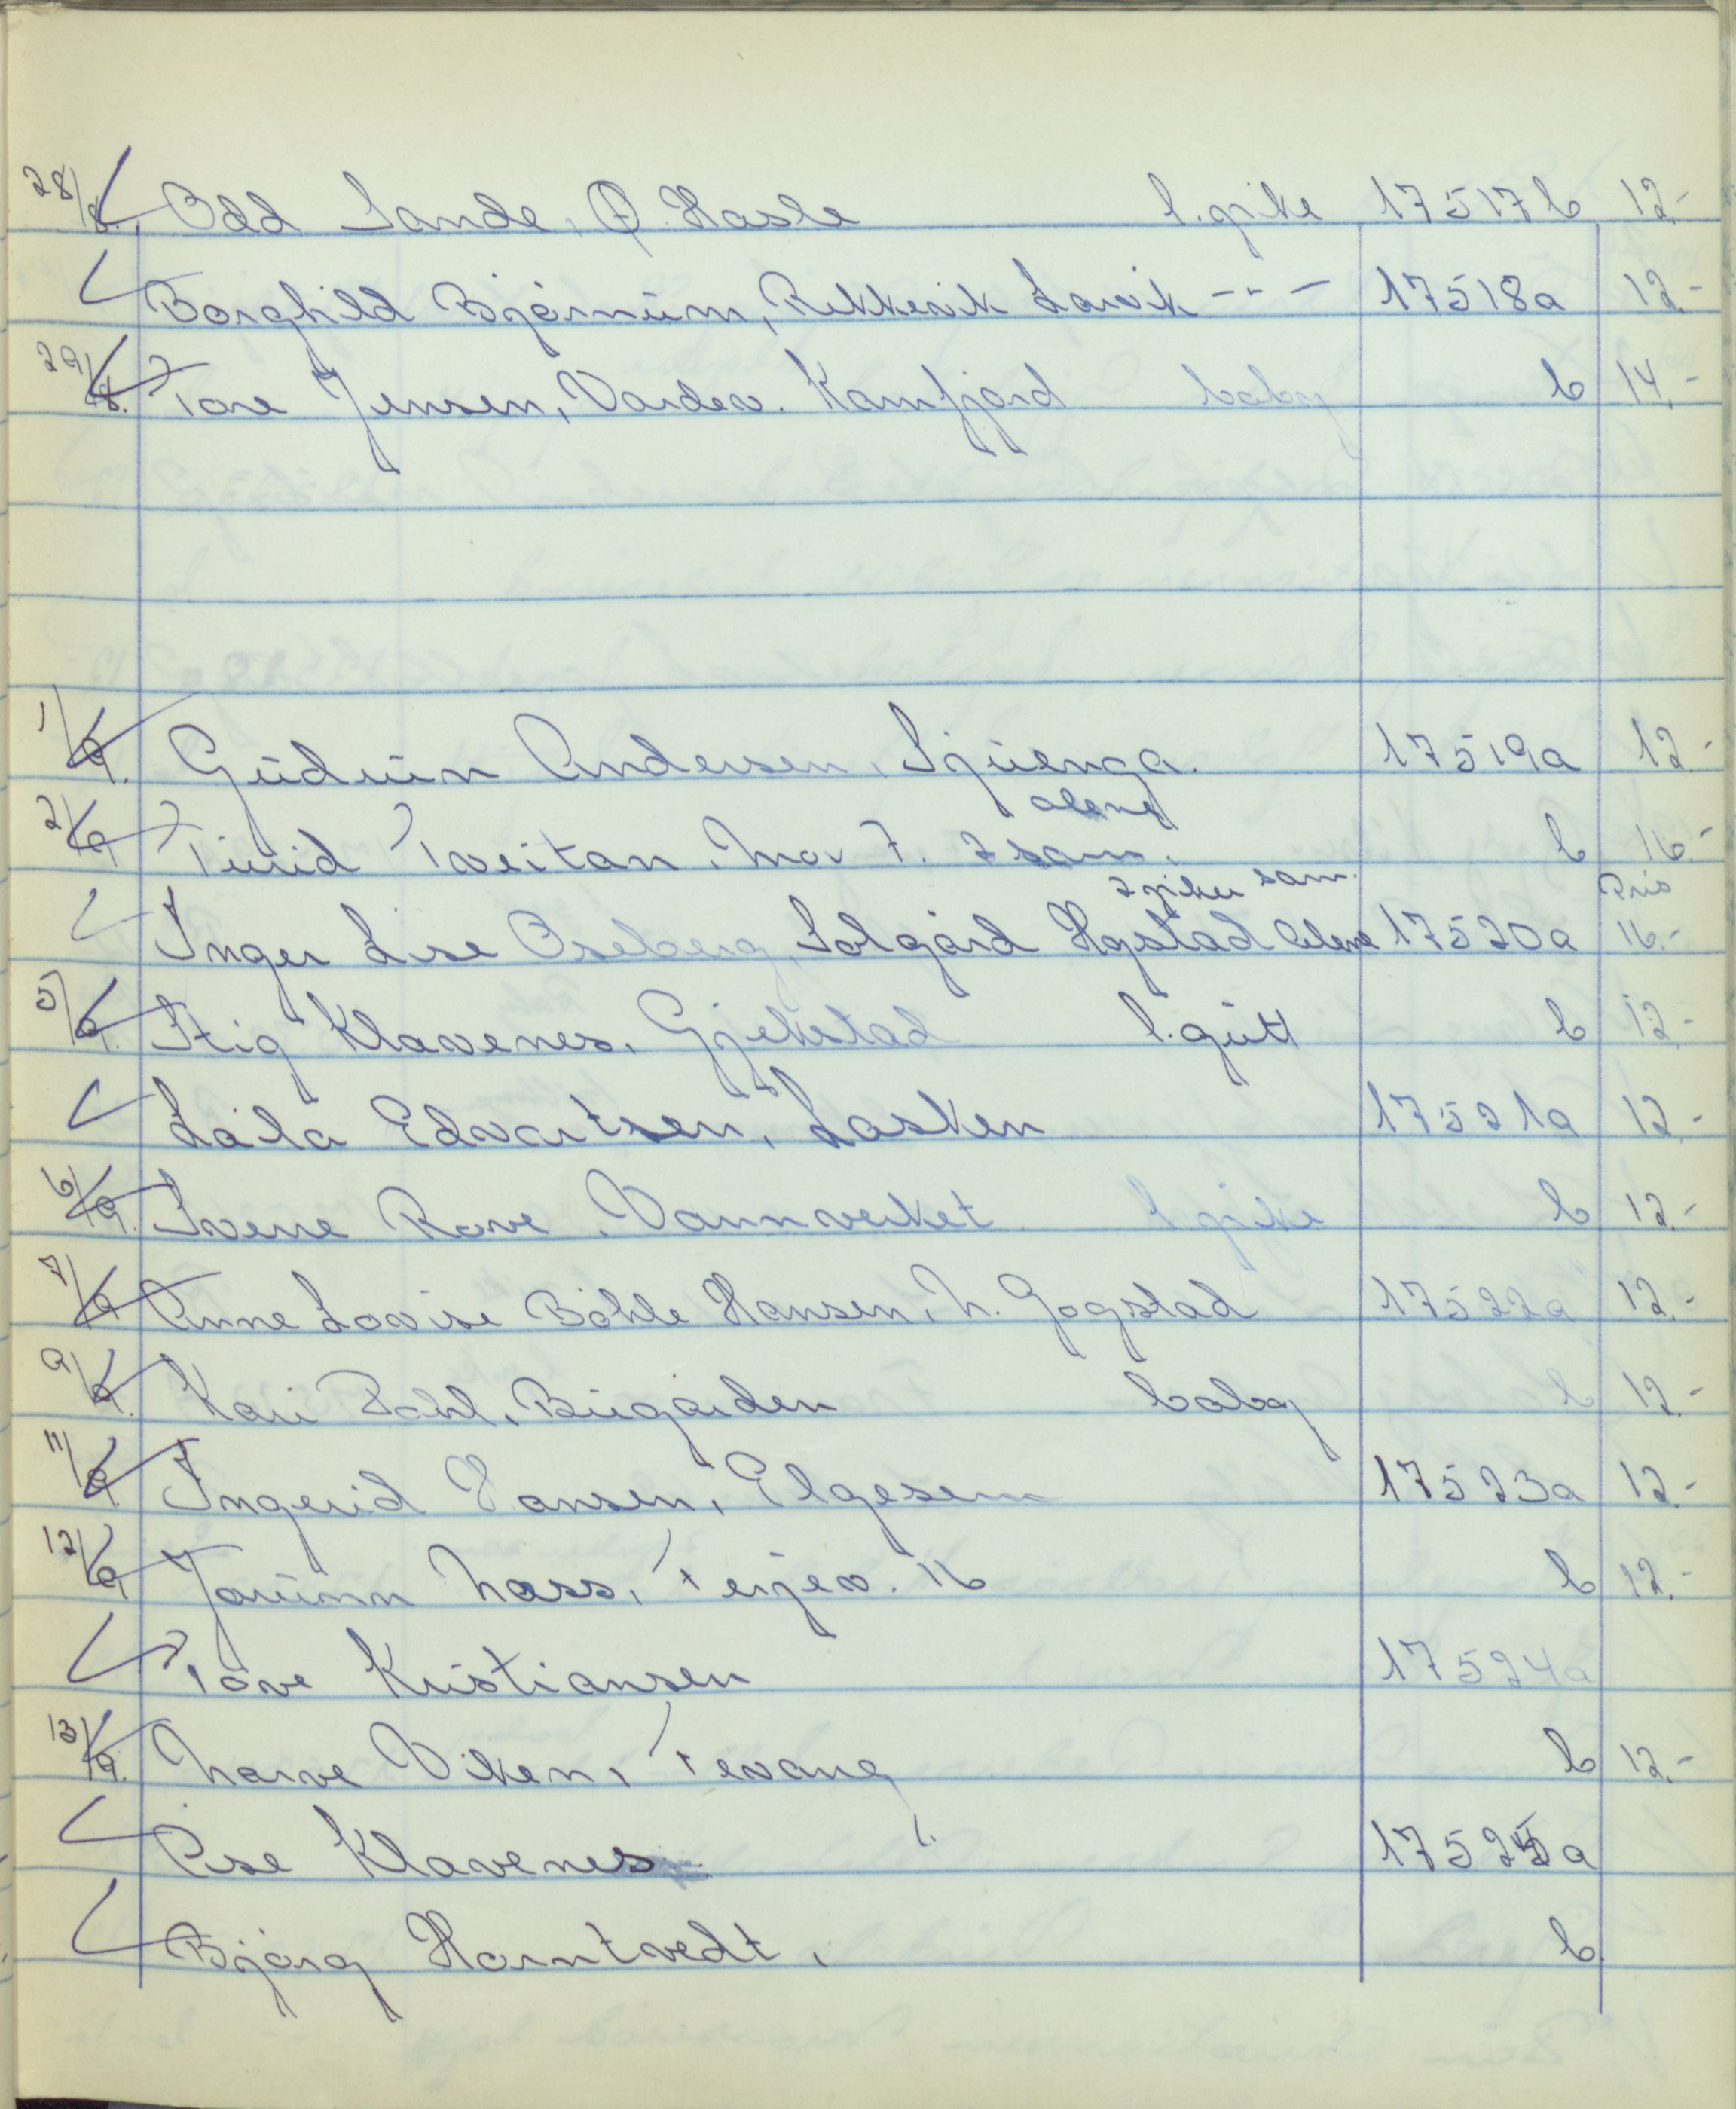 28/8. Odd Sande, Ø. Hasle l.pike 17517b 12.-
Borghild Bjørnum, Rekkevik Larvik --- 17518a 12.-
29/8. Tore Jensen, Vardev. Kamfjord baby b 14.-
1/9. Gudrun Andersen, Sjuenga. 17519a 12.-
alene
2/9 Turid Tveitan, Mov 7. 2 sam. b 16.-
2 piker sam. Pris
Inger Lise Oseberg, Solgård Hystad Alene 17520a 16.-
5/9. Stig Klavenes, Gjekstad l.gutt b 12.-
Laila Edvartsen, Lasken 17521a 12.-
6/9. Sverre Rove, Vannverket l.pike b 12.-
7/9 Anne Lovise Bøhle Hansen, N. Gogstad 17522a 12.-
9/9. Kari Dahl, Bugården baby b 12.-
11/9. Ingerid Hansen, Elgesem 17523a 12.-
12/9, Jorunn Næss, Terjev. 16 b 12.-
Tove Kristiansen 17524a
13/9. Narve Viken, Tevang b 12.-
Åse Klavenes 17525a
Bjørg Horntvedt, b.